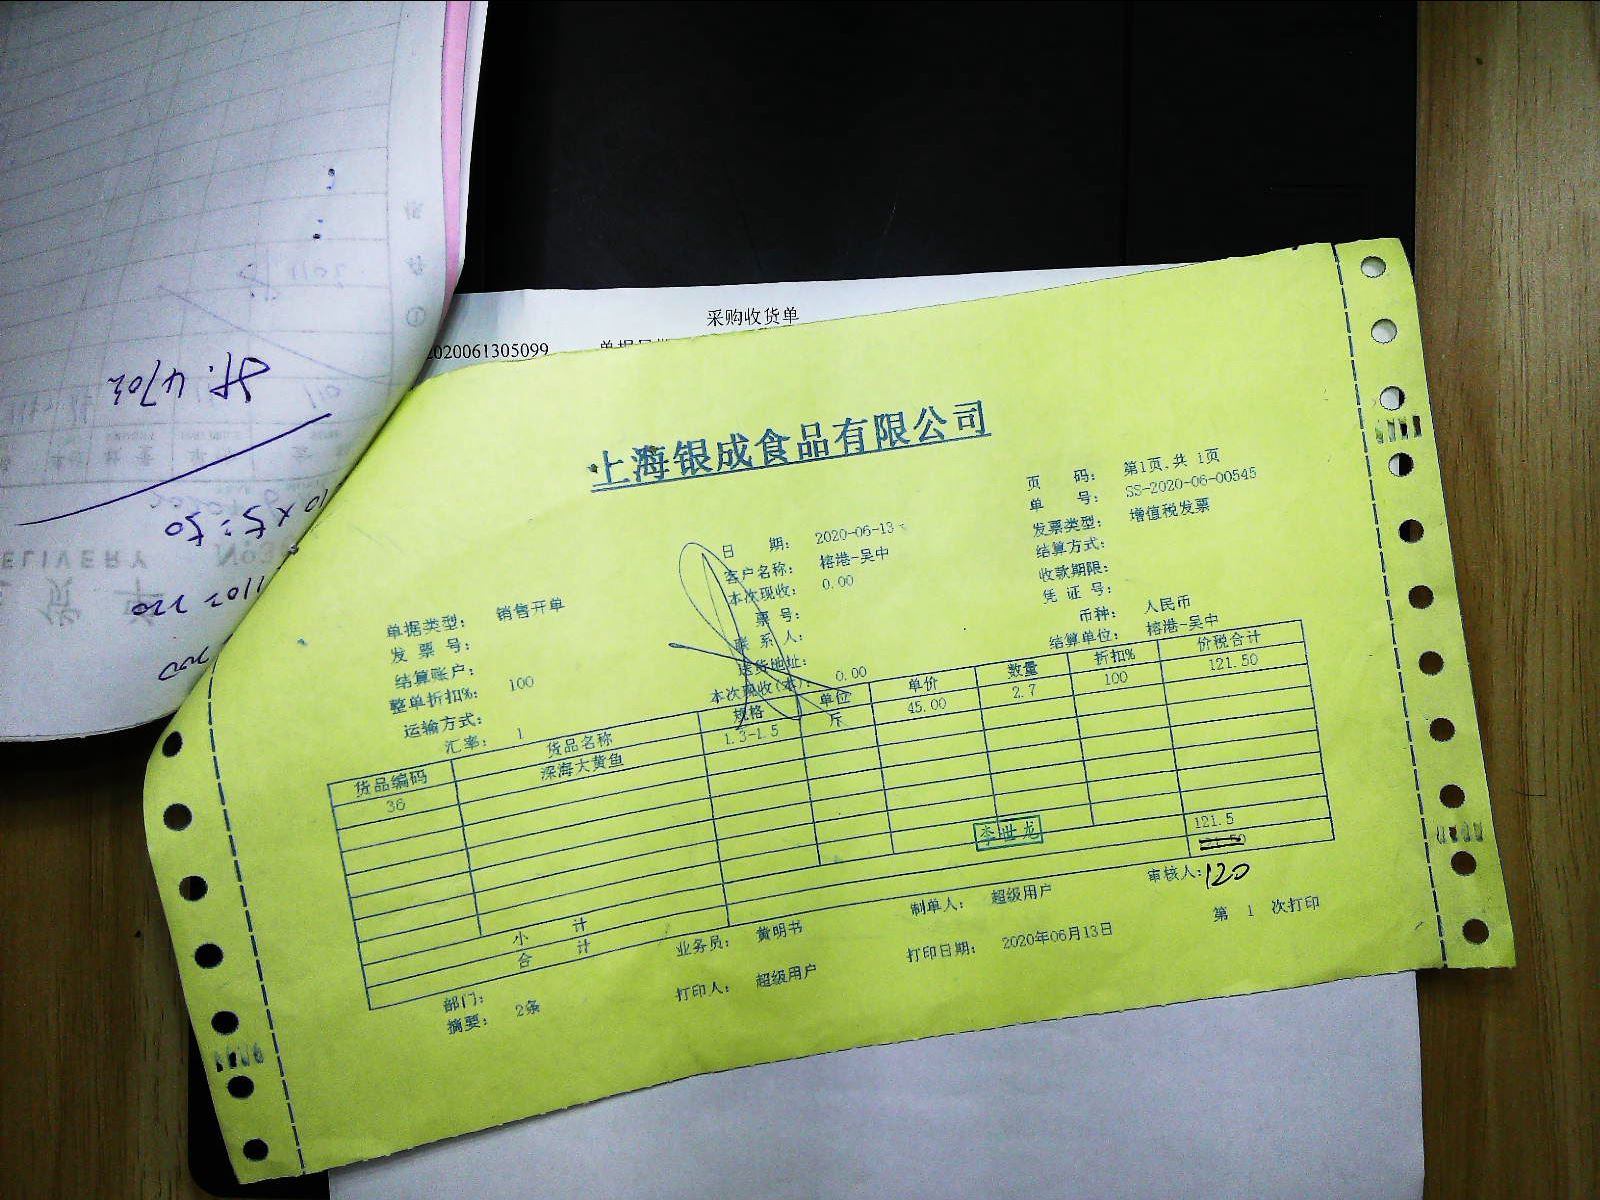 采购收货单
2020061305099
上海银成食品有限公司
页 码： 第1页,共 1页
单 号： SS-2020-06-00545
日 期： 2020-06-13
发票类型： 增值税发票
客户名称： 榕港-吴中
结算方式：
本次现收： 0.00
收款期限：
票 号：
凭 证 号：
单据类型： 销售开单
联 系 人：
币种： 人民币
发 票 号：
送货地址：
结算单位： 榕港-吴中
结算账户：
本次现收(本)： 0.00
整单折扣%： 100
运输方式：
汇率： 1
货品编码 货品名称 规格 单位 单价 数量 折扣% 价税合计
36 深海大黄鱼 1.3-1.5 斤 45.00 2.7 100 121.50
李世龙
小 计 121.5
合 计
120
部门： 业务员： 黄明书 制单人： 超级用户 审核人：
摘要： 2条 打印人： 超级用户 打印日期： 2020年06月13日 第 1 次打印
10×5=50
ELIVERY